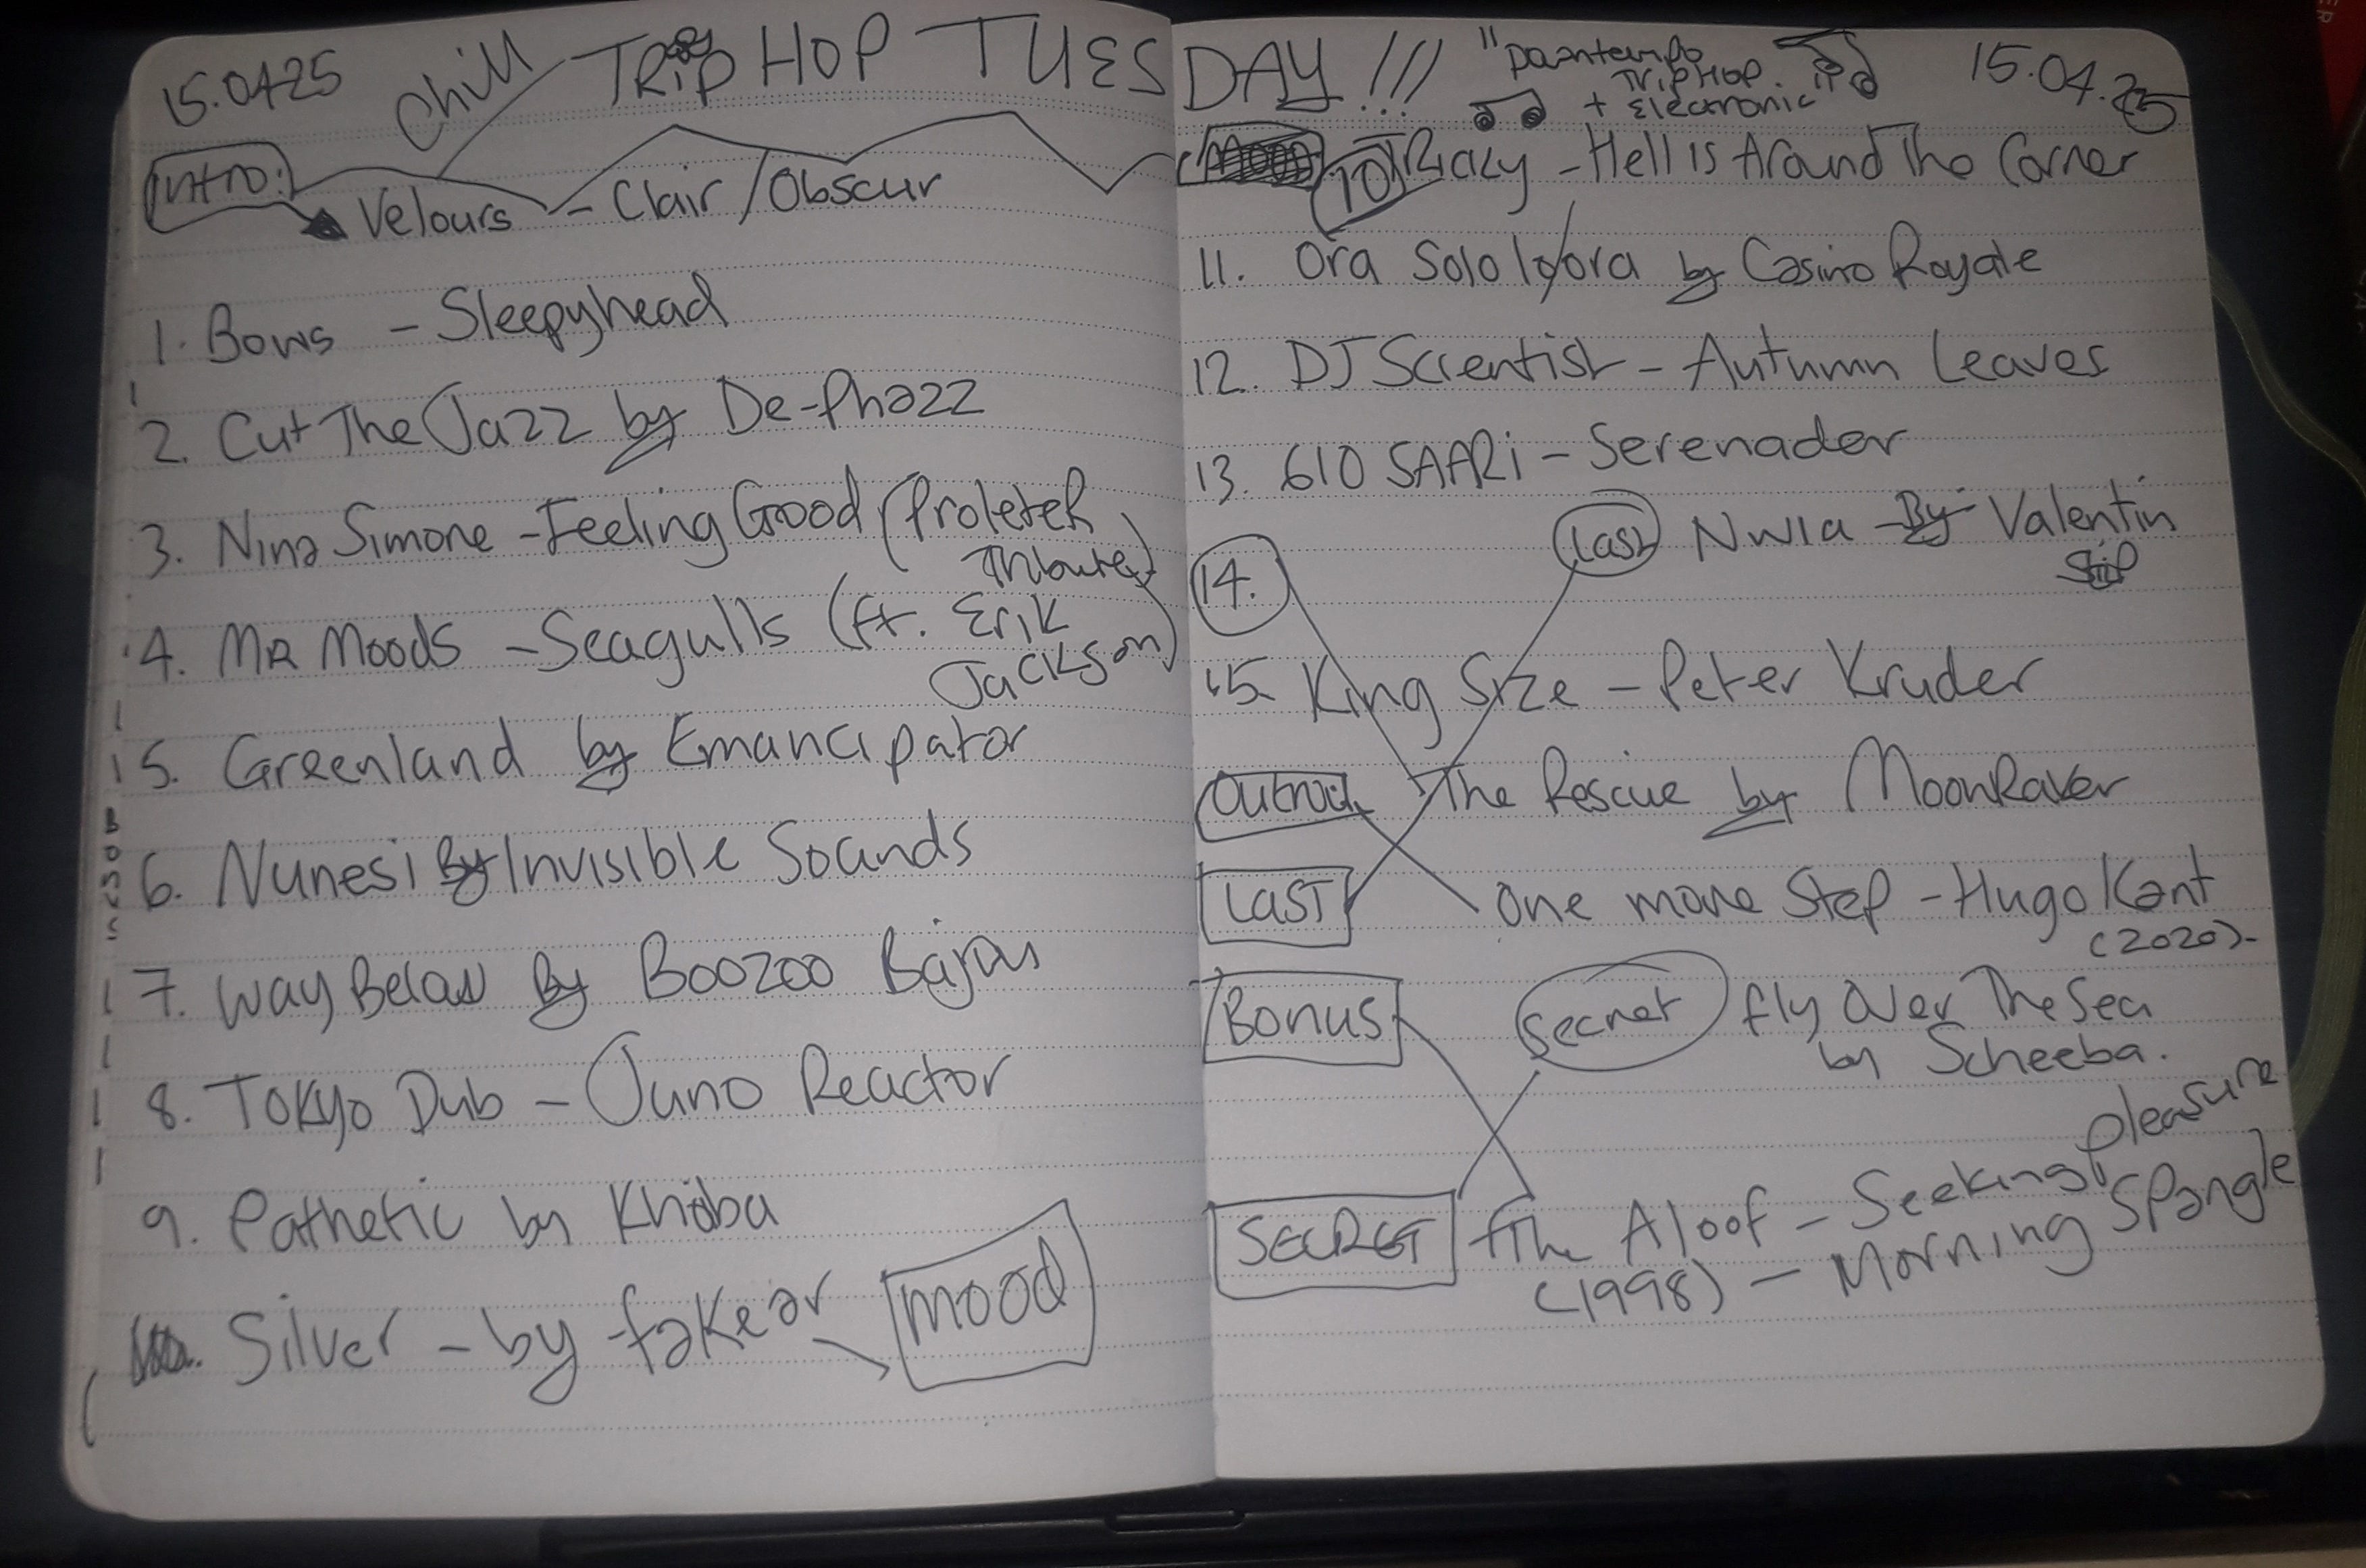 15.04.25 Chill TRIP HOP TUES
Intro:
Velours - Clair / Obscur
1. Bows - Sleepyhead
2. Cut The Jazz by De-Phazz
3. Nina Simone - Feeling Good (ProleteR
Tribute)
4. MR Moods - Seagulls (ft. Erik
Jackson)
5. Greenland by Emancipator
6. Nunesi By Invisible Sounds
7. Way Below By Boozoo Bajou
8. Tokyo Dub - Juno Reactor
9. Pathetic by Khoba
Silver - by fakear
mood
DAY!!! "Downtempo
TripHop.
+ Electronic" 15.04.25
10 Tricky - Hell is Around The Corner
11. Ora Solo Ora by Casino Royale
12. DJ Scientist - Autumn Leaves
13. 610 SAARi - Serenader
Last Nwia By Valentin
Stip
14.
15. King Size - Peter Kruder
Outro The Rescue by MoonRaker
LAST One more Step - Hugo Kant
(2020).
Bonus secret fly Over The Sea
by Scheeba.
SECRET The Aloof - Seeking pleasure
(1998) - Morning Spangle